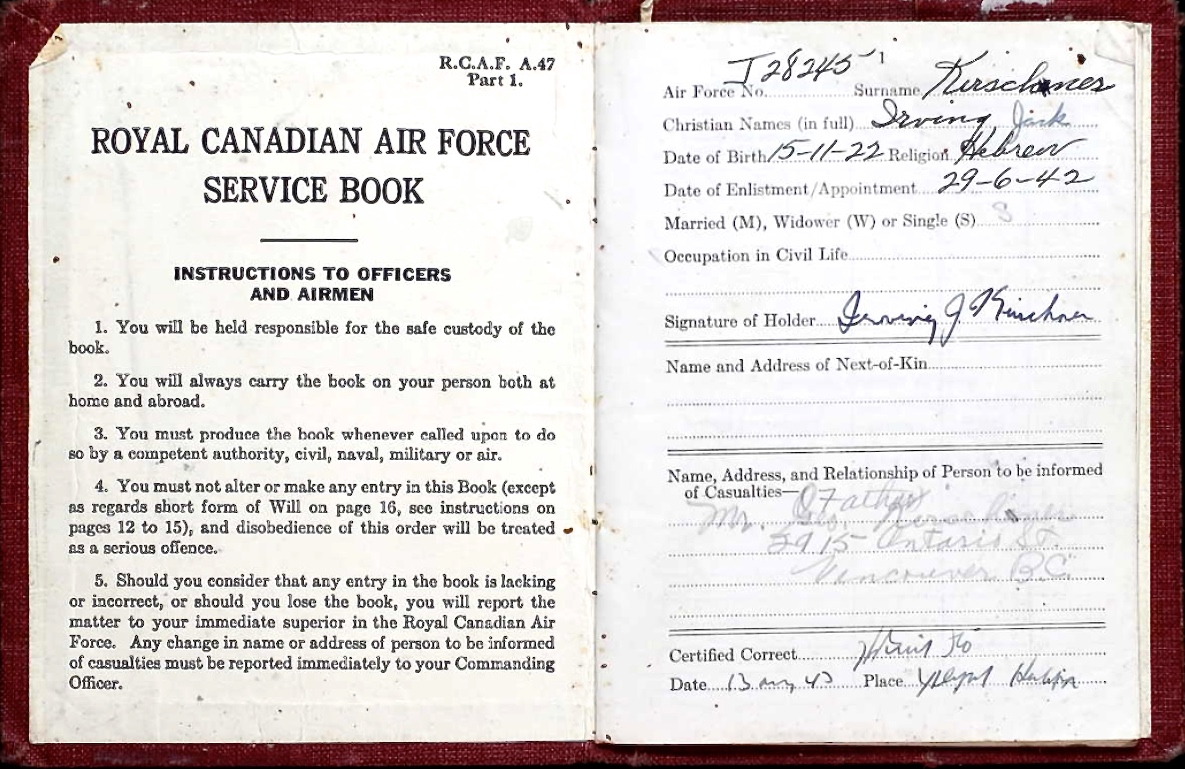 R.C.A.F. A.47
Part 1.
ROYAL CANADIAN AIR FORCE
SERVICE BOOK
INSTRUCTIONS TO OFFICERS
AND AIRMEN
1. You will be held responsible for the safe custody of the
book.
2. You will always carry the book on your person both at
home and abroad.
3. You must produce the book whenever called upon to do
so by a competent authority, civil, naval, military or air.
4. You must not alter or make any entry in this Book (except
as regards short form of Will on page 16, see instructions on
pages 12 to 15), and disobedience of this order will be treated
as a serious offence.
5. Should you consider that any entry in the book is lacking
or incorrect, or should you lose the book, you will report the
matter to your immediate superior in the Royal Canadian Air
Force. Any change in name or address of person to be informed
of casualties must be reported immediately to your Commanding
Officer.
Air Force No. J28245 Surname Kirschner
Christian Names (in full) Irving Jack
Date of Birth 15-11-22 Religion Hebrew
Date of Enlistment/Appointment 29-6-42
Married (M), Widower (W) or Single (S) S
Occupation in Civil Life
Signature of Holder Irving J Kirschner
Name and Address of Next-of-Kin
Name, Address, and Relationship of Person to be informed
of Casualties— Father
2915 Ontario St.
Vancouver BC
Certified Correct
Date 13 Place Halifax